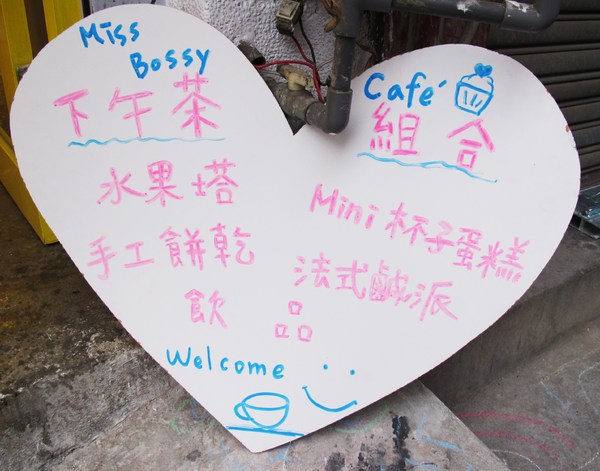 Miss
Bossy Café
下午茶 組合
水果塔 Mini杯子蛋糕
手工餅乾 法式鹹派
飲品
Welcome